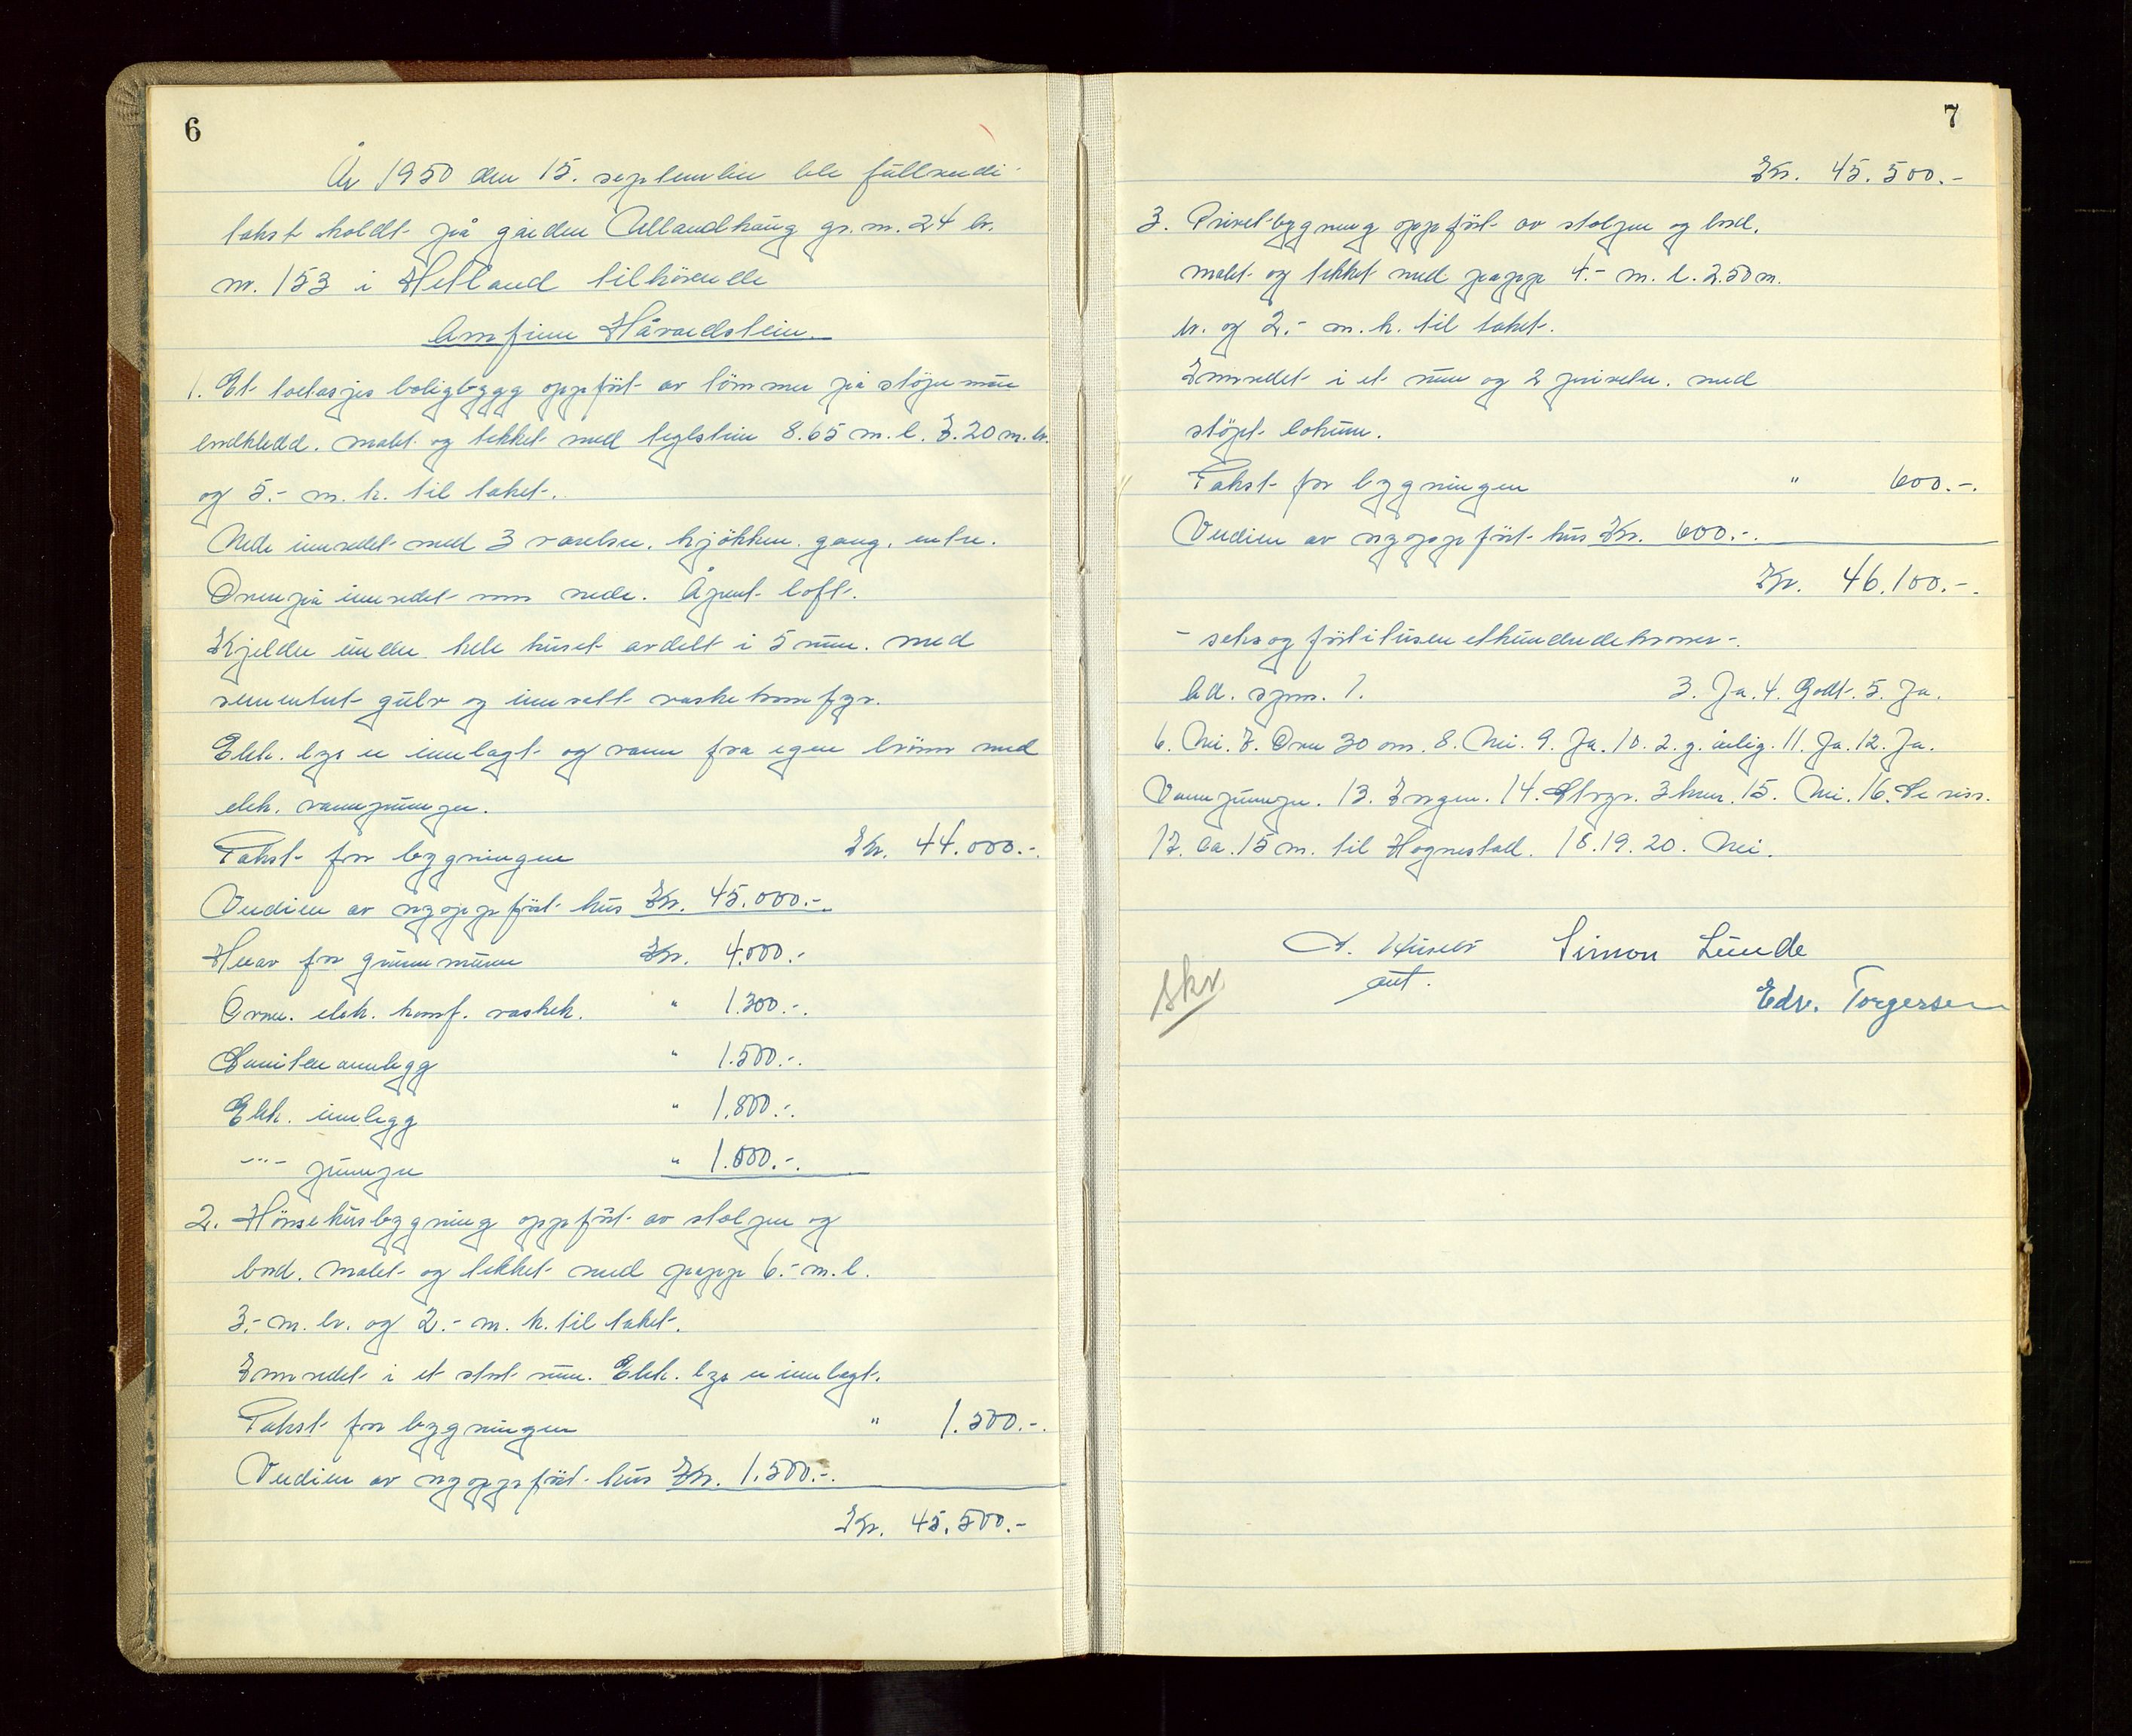 6
År 1950 den 15. september ble fullverdi
takst holdt på gården Ullandhaug gr. nr. 24 br.
nr. 153 i Hetland tilhörende
Arnfinn Håvardstein.
1. Et toetasjes boligbygg oppfört av tömmer på stöpe mur
bordkledd. malet og tekket med teglstein 8.65 m. l. 7.20 m. br.
og 5.- m. h. til taket.
Nede innredet med 3 værelser. kjökken. gang. entre.
Ovenpå innredet som nede. Åpent loft.
Kjelder under hele huset avdelt i 5 rum. med
sementert gulv og innsatt vaskekomfyr.
Elek. lys er innlagt og vann fra egen brönn med
elek. vannpumpe.
Takst for bygningen Kr. 44.000.-.
Verdien av nyoppfört hus Kr. 45.000.-.
Herav for grunnmuren Kr. 4.000.-
Ovne. elek. komf. vaskek. " 1.300.-.
Sanitæranlegg " 1.500.-.
Elek. innlegg " 1.800.-.
-"- pumpe " 1.000.-.
2. Hönsehusbygning oppfört av stolper og
bord. malet og tekket med papp 6.- m. l.
3.- m. br. og 2.- m. h. til taket.
Innredet i et stort rum. Elek. lys er innlagt.
Takst for bygningen " 1.500.-.
Verdien av nyoppfört hus Kr. 1.500.-.
Kr. 45.500.-
7
Kr. 45.500.-
3. Privetbygning oppfört av stolper og bord.
malet og tekket med papp 4.- m. l. 2.50 m.
br. og 2.- m. h. til taket.
Innredet i et rum og 2 priveter. med
stöpt lokum.
Takst for bygningen " 600.-.
Verdien av nyoppfört hus Kr. 600.-.
Kr. 46.100.-.
- seksogförtitusenethundredekroner -.
Ad. spm. 1. 3. Ja. 4. Godt. 5. Ja.
6. Nei. 7. Over 30 m. 8. Nei. 9. Ja. 10. 2. g. årlig. 11. Ja. 12. Ja.
Vannpumpe. 13. Ingen. 14. Strzr. 3 km. 15. Nei. 16. Se riss.
17. ca. 15 m. til Hognestad. 18. 19. 20. Nei.
Simon Lunde
ant.
Skr.
Edv. Torgersen